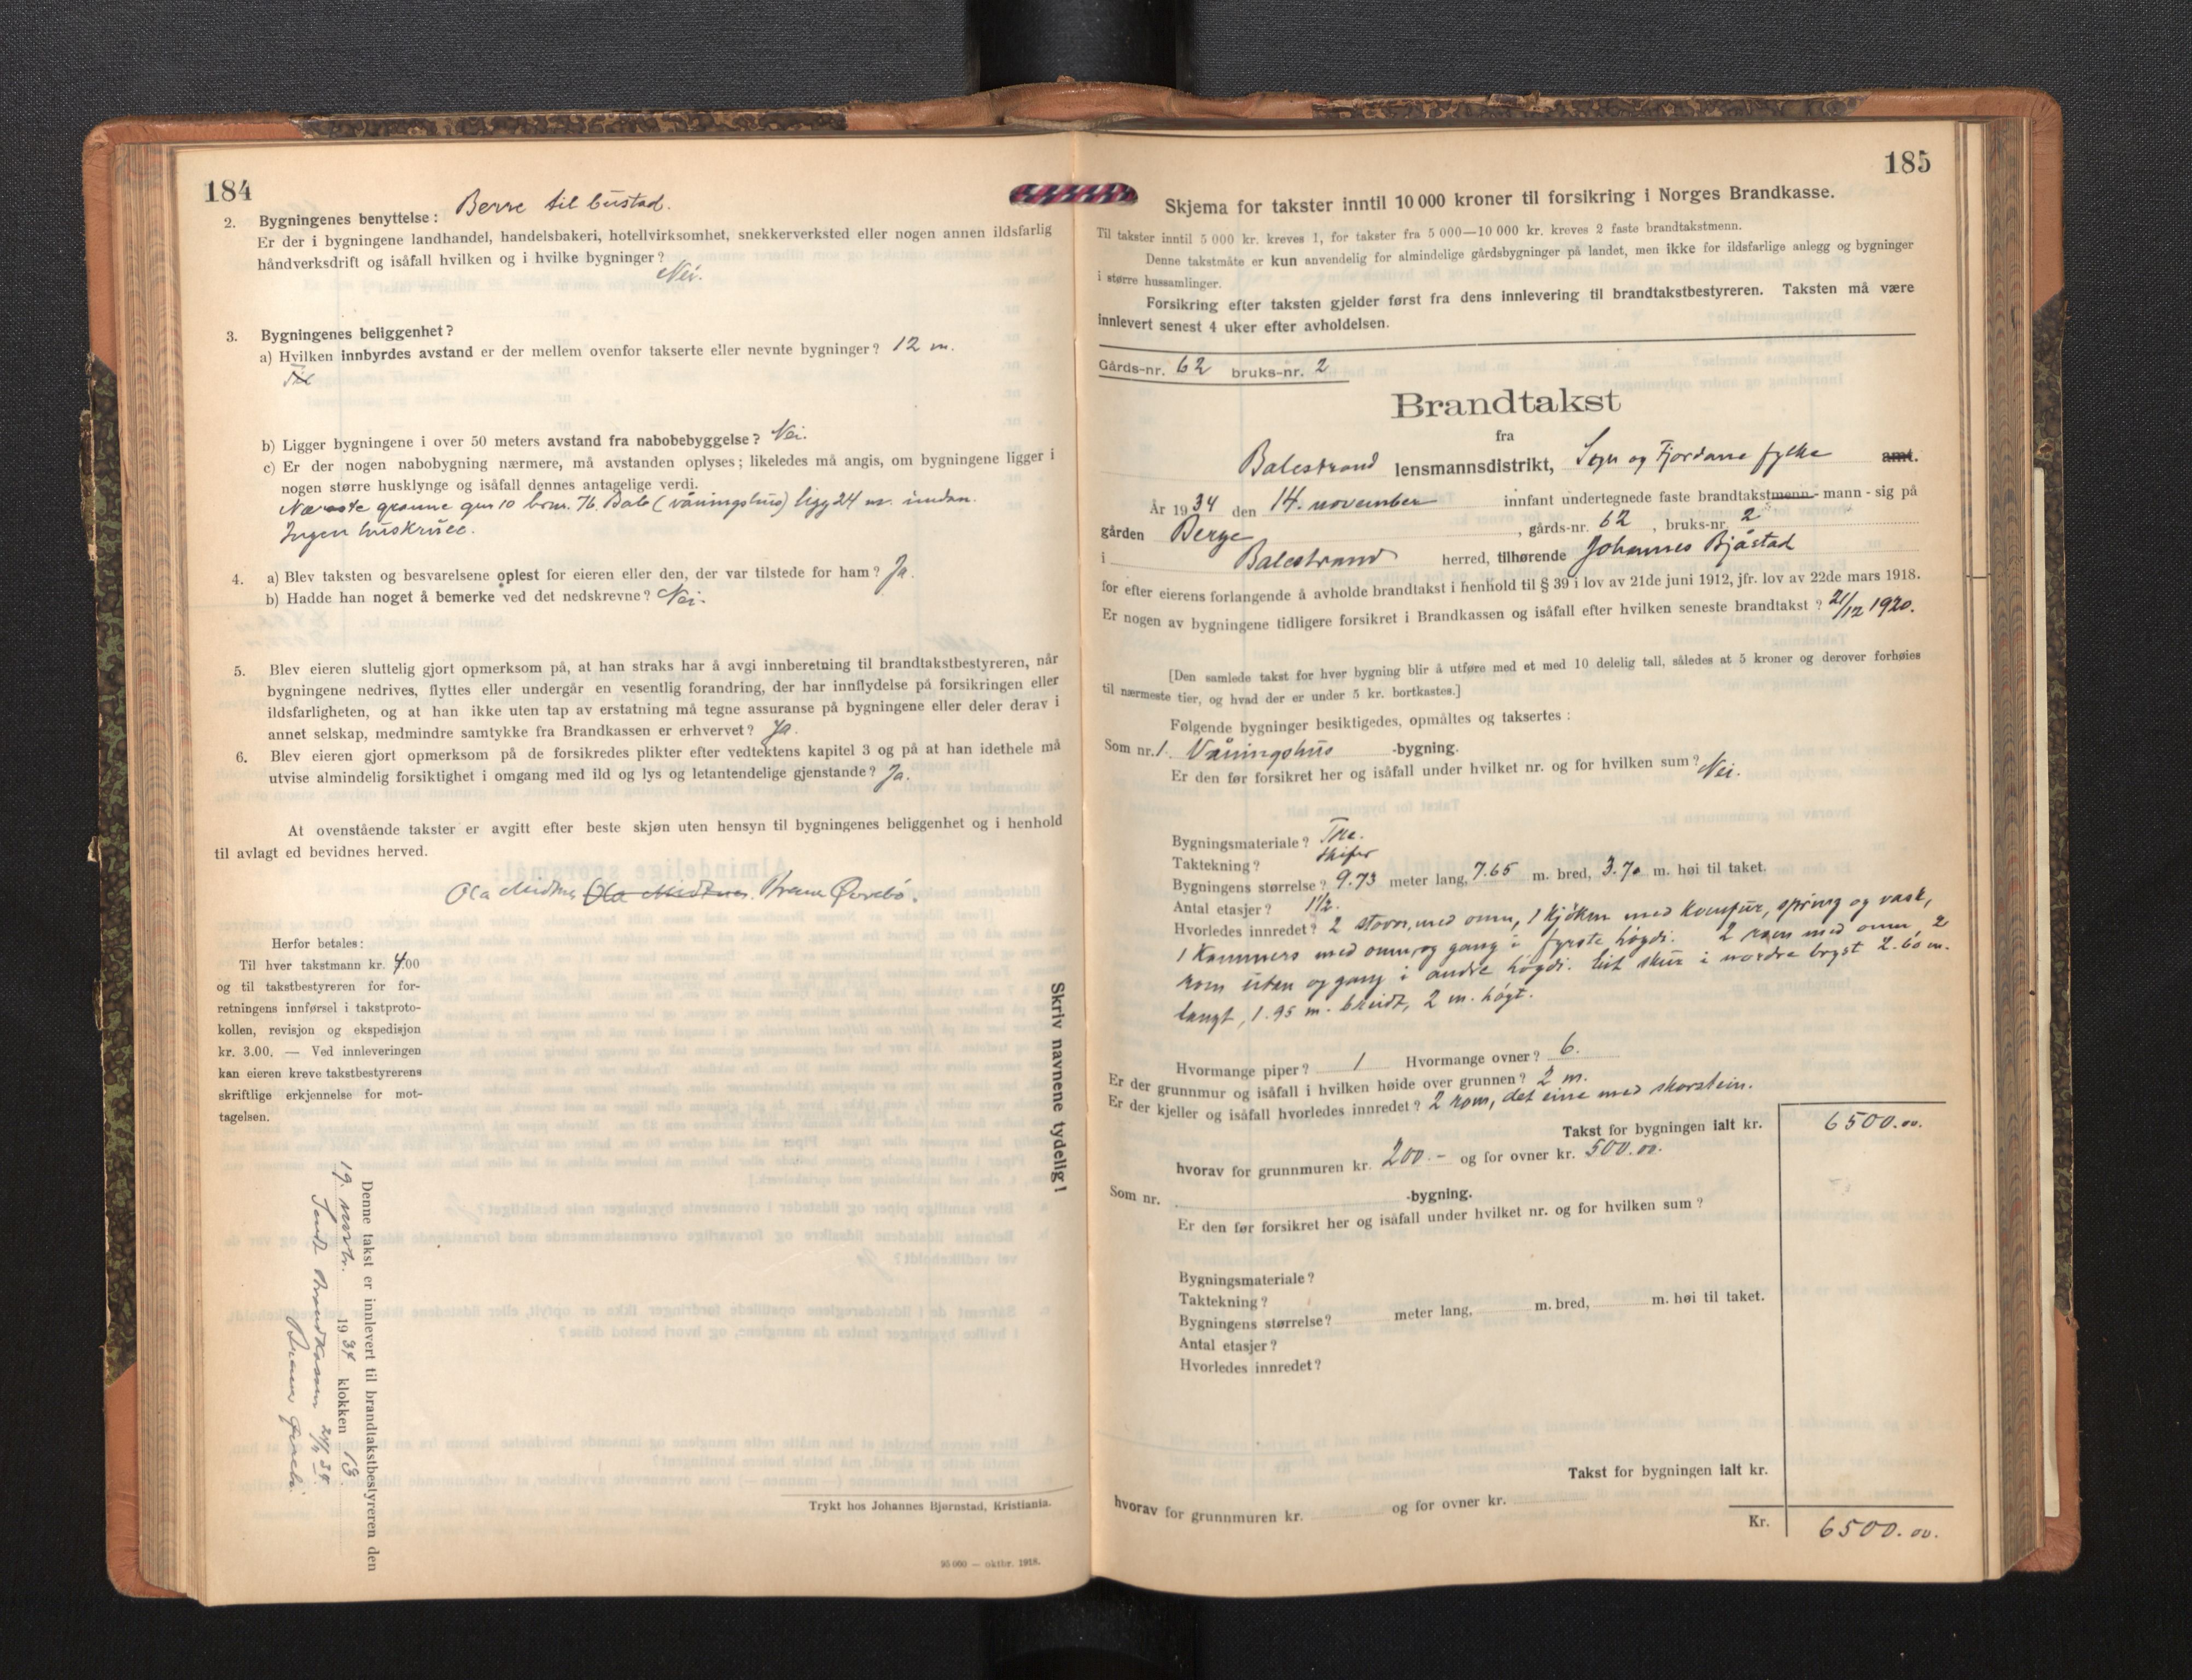 184
2. Bygningenes benyttelse: Berre til bustad.
Er der i bygningene landhandel, handelsbakeri, hotellvirksomhet, snekkerverksted eller nogen annen ildsfarlig
håndverksdrift og isåfall hvilken og i hvilke bygninger?
Nei.
3. Bygningenes beliggenhet?
a) Hvilken innbyrdes avstand er der mellem ovenfor takserte eller nevnte bygninger? 12 m.
Til
b) Ligger bygningene i over 50 meters avstand fra nabobebyggelse? Nei.
c) Er der nogen nabobygning nærmere, må avstanden oplyses; likeledes må angis, om bygningene ligger i
nogen større husklynge og isåfall dennes antagelige verdi.
Næraste granne gnr 10 brnr. 76. Bale (våningshus) ligg 24 m. undan.
Ingen
4. a) Blev taksten og besvarelsene oplest for eieren eller den, der var tilstede for ham? Ja.
b) Hadde han noget å bemerke ved det nedskrevne? Nei.
5. Blev eieren sluttelig gjort opmerksom på, at han straks har å avgi innberetning til brandtakstbestyreren, når
bygningene nedrives, flyttes eller undergår en vesentlig forandring, der har innflydelse på forsikringen eller
ildsfarligheten, og at han ikke uten tap av erstatning må tegne assuranse på bygningene eller deler derav i
annet selskap, medmindre samtykke fra Brandkassen er erhvervet? Ja.
6. Blev eieren gjort opmerksom på de forsikredes plikter efter vedtektens kapitel 3 og på at han idethele må
utvise almindelig forsiktighet i omgang med ild og lys og letantendelige gjenstande? Ja.
At ovenstående takster er avgitt efter beste skjøn uten hensyn til bygningenes beliggenhet og i henhold
til avlagt ed bevidnes herved.
Ola Midtnes Ola Midtnes. Øvrebø.
Herfor betales:
Til hver takstmann kr. 4.00
og til takstbestyreren for for-
retningens innførsel i takstproto-
kollen, revisjon og ekspedisjon
kr. 3.00. — Ved innleveringen
kan eieren kreve takstbestyrerens
skriftlige erkjennelse for mot-
tagelsen.
Skriv navnene tydelig!
Denne takst er innlevert til brandtakstbestyreren den
19. novbr. 1934 klokken 13.
Sendt Brandkassen 24/11 34.
Trykt hos Johannes Bjørnstad, Kristiania.
95 000 — oktbr. 1918.
185
Skjema for takster inntil 10 000 kroner til forsikring i Norges Brandkasse.
Til takster inntil 5 000 kr. kreves 1, for takster fra 5 000—10 000 kr. kreves 2 faste brandtakstmenn.
Denne takstmåte er kun anvendelig for almindelige gårdsbygninger på landet, men ikke for ildsfarlige anlegg og bygninger
i større hussamlinger.
Forsikring efter taksten gjelder først fra dens innlevering til brandtakstbestyreren. Taksten må være
innlevert senest 4 uker efter avholdelsen.
Gårds-nr. 62 bruks-nr. 2
Brandtakst
fra
Balestrand lensmannsdistrikt, Sogn og Fjordane fylke amt.
År 1934 den 14. november innfant undertegnede faste brandtakstmenn - mann - sig på
gården Berge, gårds-nr. 62, bruks-nr. 2
i Balestrand herred, tilhørende Johannes Bjåstad
for efter eierens forlangende å avholde brandtakst i henhold til § 39 i lov av 21de juni 1912, jfr. lov av 22de mars 1918.
Er nogen av bygningene tidligere forsikret i Brandkassen og isåfall efter hvilken seneste brandtakst? 21/12 1920.
[Den samlede takst for hver bygning blir å utføre med et med 10 delelig tall, således at 5 kroner og derover forhøies
til nærmeste tier, og hvad der er under 5 kr. bortkastes.]
Følgende bygninger besiktigedes, opmåltes og taksertes:
Som nr. 1. Våningshus -bygning.
Er den før forsikret her og isåfall under hvilket nr. og for hvilken sum? Nei.
Bygningsmateriale? Tre.
Taktekning? Skifer
Bygningens størrelse? 9.73 meter lang, 7.65 m. bred, 3.70 m. høi til taket.
Antal etasjer? 1½.
Hvorledes innredet? 2 stovor, med omn, 1 kjøken med komfur, spring og vask,
1 kammers med omn, og gang i fyrste høgdi. 2 rom med omn, 2
rom utan og gang i andre høgdi. Eit skur i nordre bryst 2.60 m.
langt, 1.95 m. breidt, 2 m. høgt.
Hvormange piper? 1 Hvormange ovner? 6.
Er der grunnmur og isåfall i hvilken høide over grunnen? 2 m.
Er der kjeller og isåfall hvorledes innredet? 2 rom, det eine med skorstein.
Takst for bygningen ialt kr. 6500.00.
hvorav for grunnmuren kr. 200.- og for ovner kr. 500.00.
Som nr. -bygning.
Er den før forsikret her og isåfall under hvilket nr. og for hvilken sum?
Bygningsmateriale?
Taktekning?
Bygningens størrelse? meter lang, m. bred, m. høi til taket.
Antal etasjer?
Hvorledes innredet?
Takst for bygningen ialt kr.
hvorav for grunnmuren kr. og for ovner kr.
Kr. 6500.00.